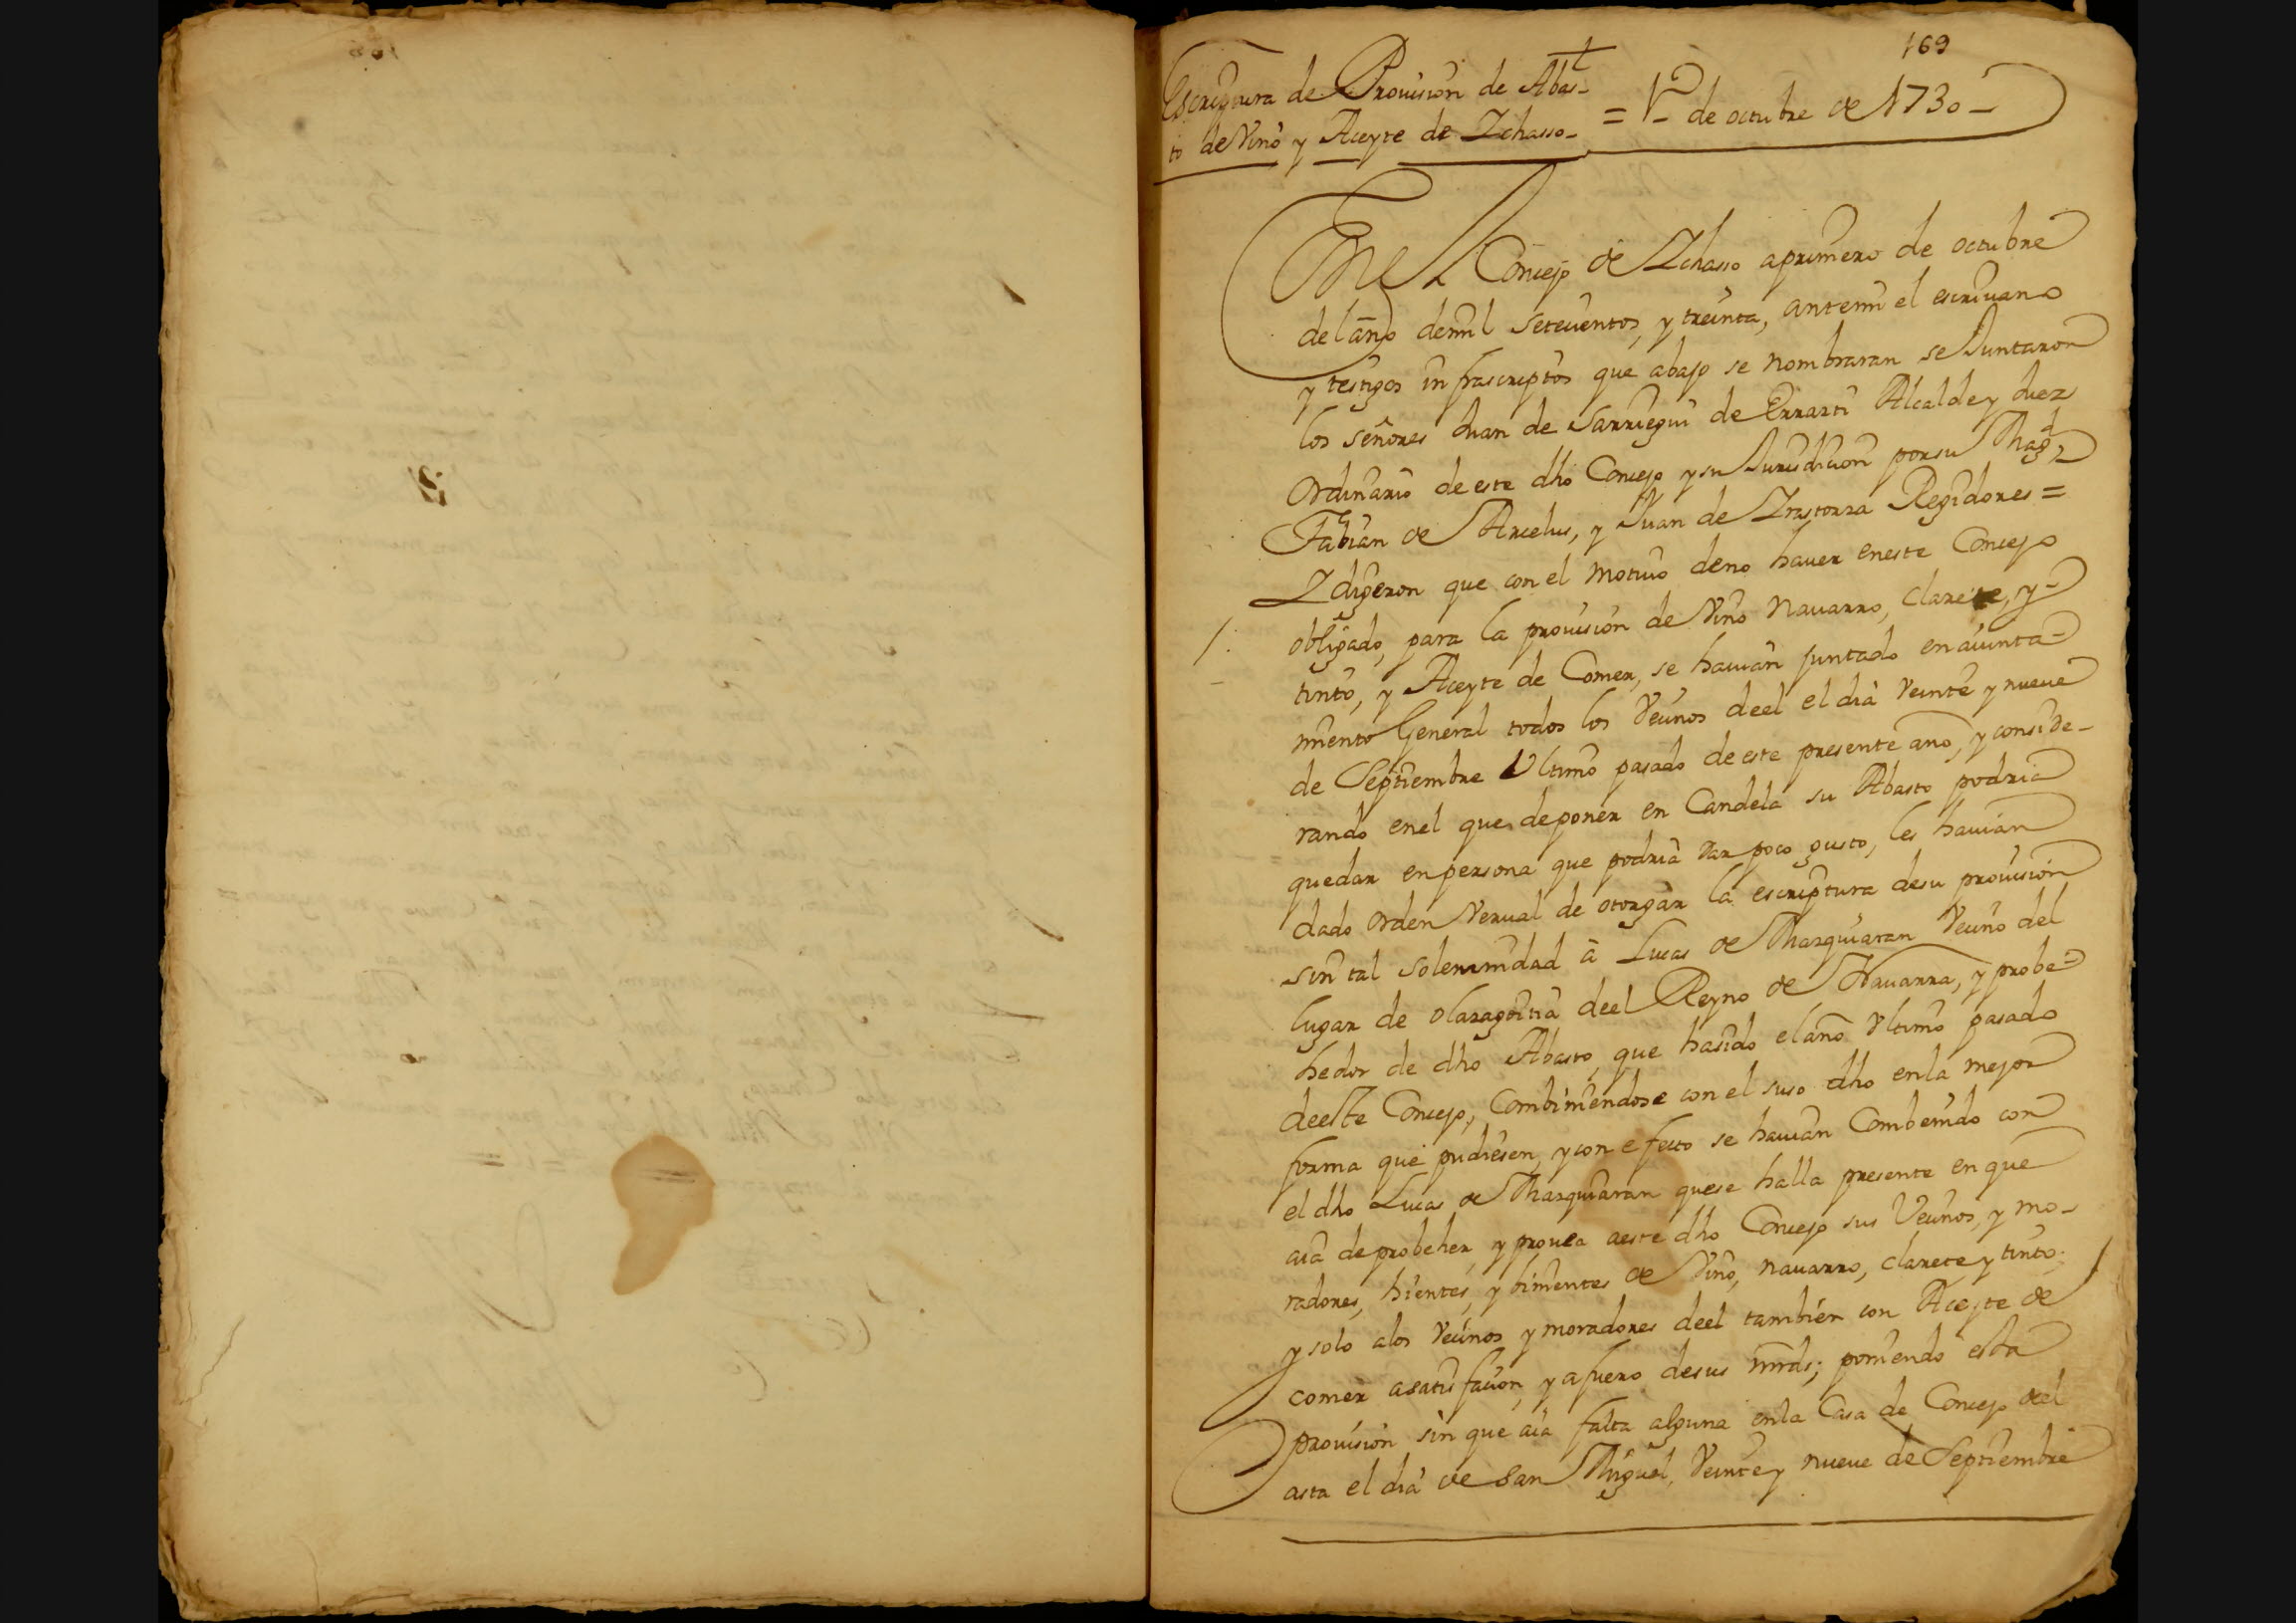 169
Escriptura de Provision de Abas-
to de Vino y Aceyte de Ichasso-
= 1º de octubre de 1730-
En el Concejo de Ichasso a primero de octubre
del año de mil setecientos, y treinta, ante mi el escrivano
y testigos infrascriptos que abajo se nombraran se Juntaron
los señores Juan de Sarriegui de Errazti Alcalde y Juez
Ordinario de este dho Concejo y su Jurisdicion por su Magd,
Fabian de Arcelus, y Juan de Irastorza Regidores =
I digeron que con el motivo de no haver en este Concejo
obligado, para la provision de Vino Navarro, Clarete, y-
tinto, y Aceyte de Comer, se havian juntado en aiunta-
miento General todos los Vecinos de el el dia Veinte y nueve
de Septiembre Ultimo pasado de este presente año, y conside-
rando en el que de poner en Candela su Abasto podria
quedar en persona que podria dar poco gusto, les havian
dado orden Verval de otorgar la escriptura de su provision
sin tal solemnidad â Lucas de Mazquiaran Vecino del
lugar de olazagoitia de el Reyno de Navarra, y probe-
hedor de dho Abasto, que ha sido el año Ultimo pasado
de este Concejo, Combiniendose con el suso dho en la mejor
forma que pudiesen, y con efecto se havian Combenido con
el dho Lucas de Mazquiaran que se halla presente en que
aia de probeher, y provea a este dho Concejo sus Vecinos, y mo-
radores, hientes, y binientes de Vino, navarro, clarete y tinto,
y solo a los Vecinos y moradores de el tambien con Aceyte de
comer a satisfacion, y a fuero de sus mrds; poniendo esta
provision sin que aia falta alguna en la Casa de Concejo del
asta el dia de San Miguel, Veinte y nueve de Septiembre